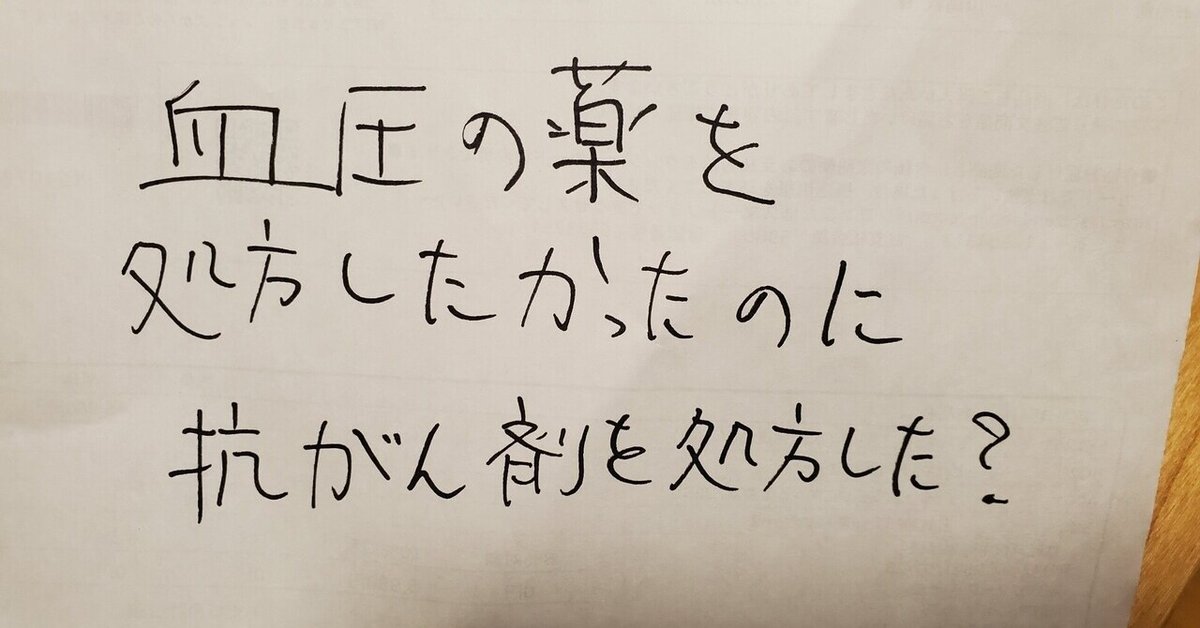 血圧の薬を
処方したかったのに
抗がん剤を処方した?